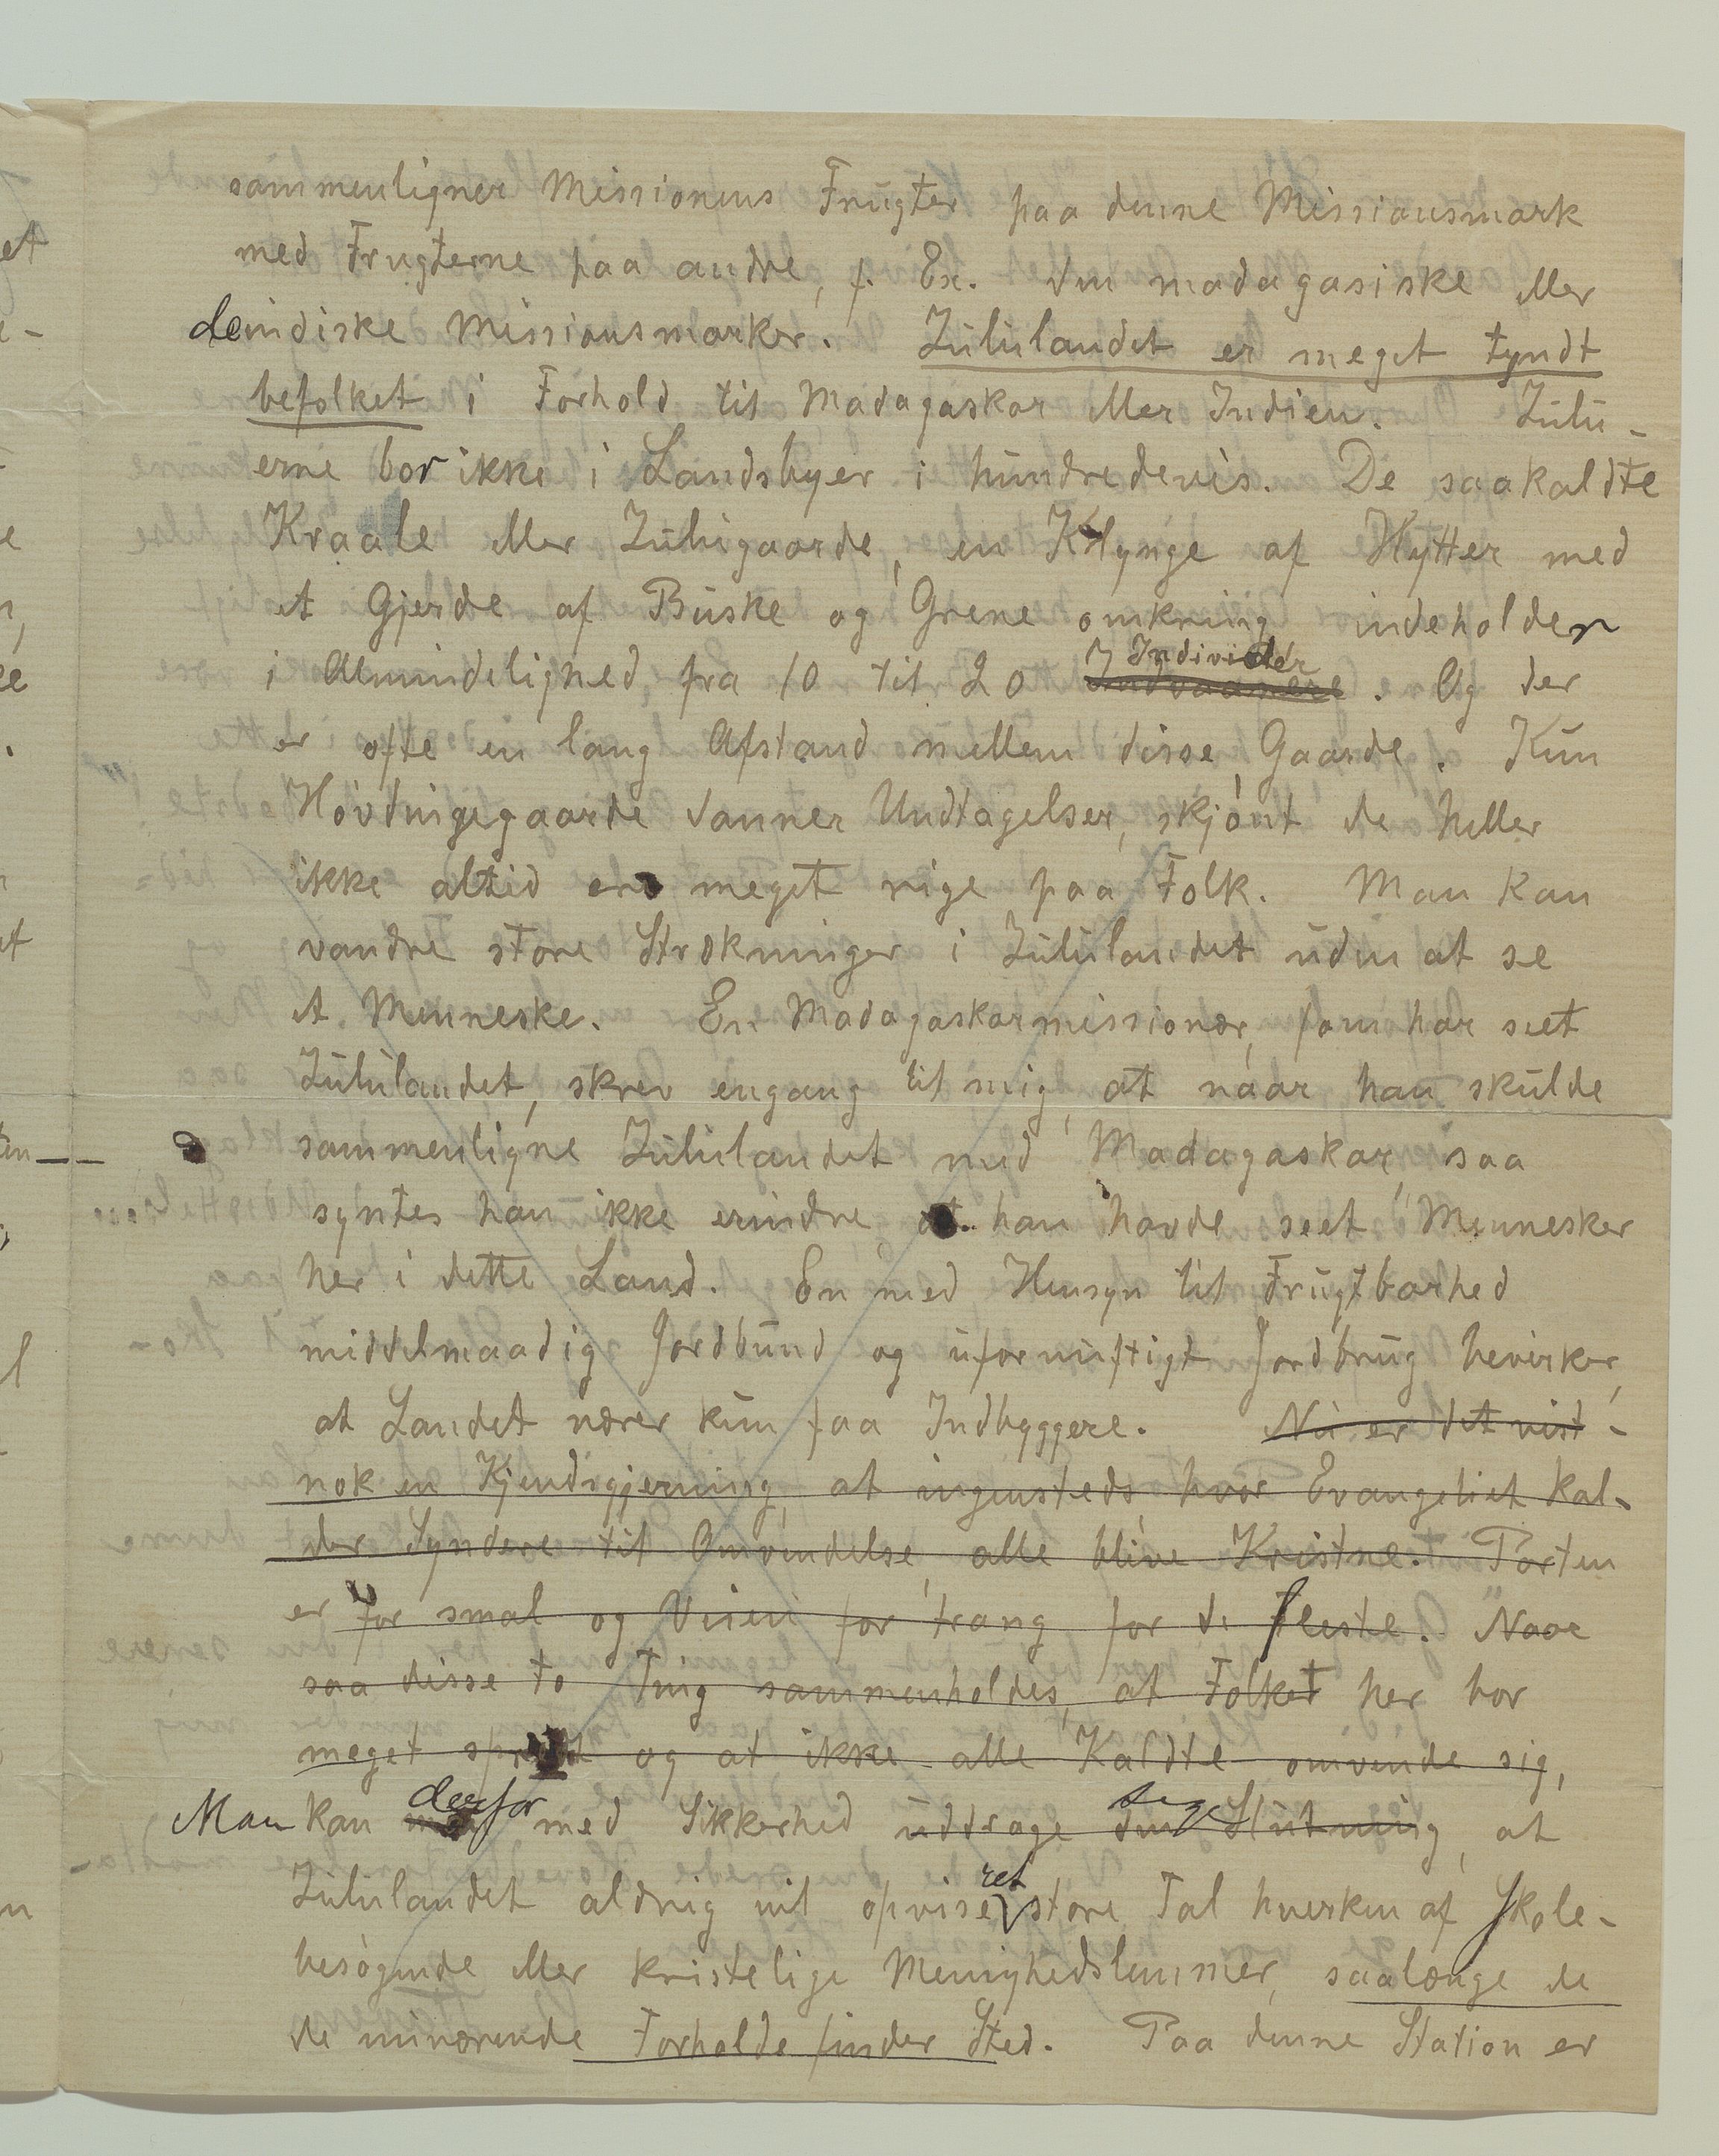 sammenligner Missionens Frugter paa denne Missionsmark
med Frugterne paa andre, f. Ex. den madagasiske eller
de indiske Missionsmarker. Zululandet er meget tyndt
befolket i Forhold til Madagaskar eller Indien. Zulu-
erne bor ikke i Landsbyer i hundredevis. De saakaldte
Kraale eller Zulugaarde, en Klynge af Hytter med
et Gjerde af Buske og Grene omkring indeholder
i Almindelighed, fra 10 til 20 Individer Indvaanere. Og der
er ofte en lang Afstand mellem disse Gaarde. Kun
Høvdingegaarde danner Undtagelser, skjønt de heller
ikke altid er meget rige paa Folk. Man kan
vandre store Strækninger i Zululandet uden at se
et Menneske. En Madagaskarmissionær, som har seet
Zululandet, skrev engang til mig, at naar han skulde
sammenligne Zululandet med Madagaskar, saa
syntes han ikke erindre at han havde seet Mennesker
her i dette Land. En med Hensyn til Frugtbarhed
middelmaadig Jordbund og ufornuftigt Jordbrug bevirker,
at Landet nærer kun faa Indbyggere. Nu er det vist-
nok en Kjendsgjerning, at ingensteds, hvor Evangeliet kal-
der Syndere til Omvendelse, alle blive Kristne. Porten
er for smal og Veien for trang for de fleste. Naar
saa disse to Ting sammenholdes, at Folket her bor
meget spredt og at ikke alle Kaldte omvende sig,
Man kan derfor med Sikkerhed uddrage den Slutning sige, at
Zululandet aldrig vil opvise ret store Tal hverken af Skole-
besøgende eller kristelige Menighedslemmer, saalænge de
de nuværende Forholde finder Sted. Paa denne Station er